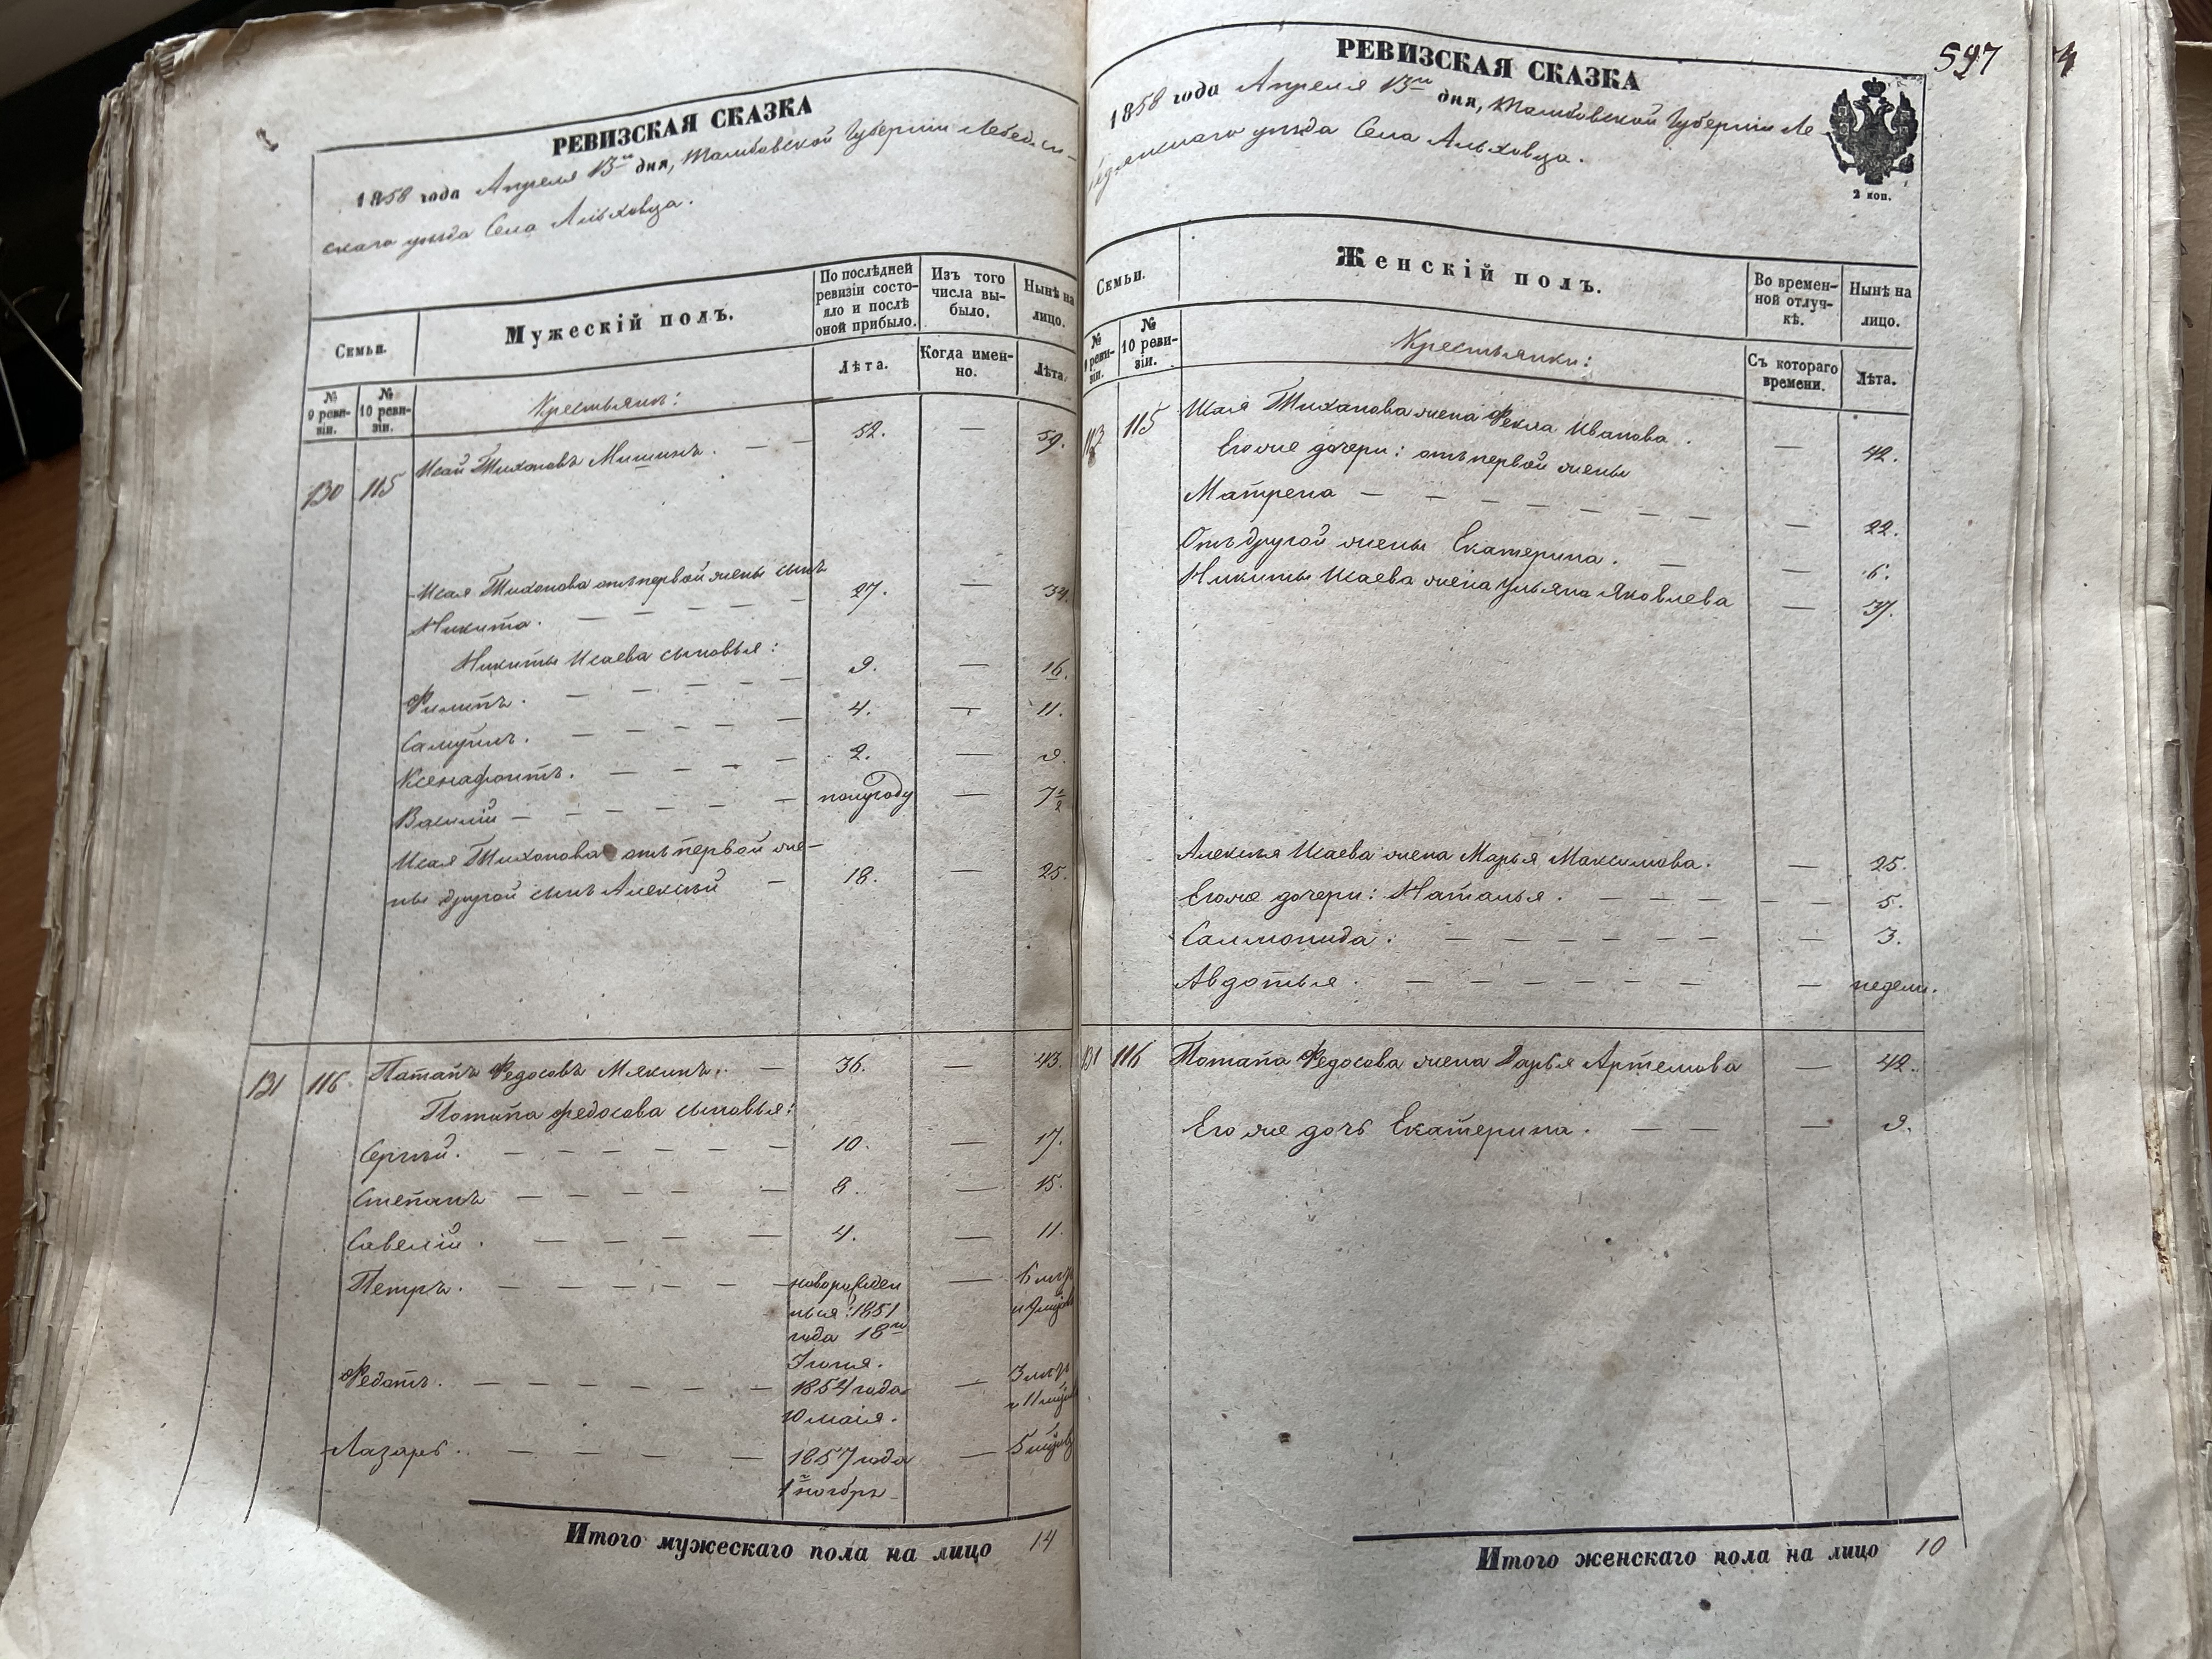 РЕВИЗСКАЯ СКАЗКА
1858 года Апреля 13го дня, Тамбовской Губернии Лебедян-
скаго уезда Села Альховца.
Семьи.
Мужескій полъ.
По послѣдней ревизіи состо-яло и послѣ оной прибыло.
Изъ того числа вы-было.
Нынѣ на лицо.
№ 9 реви-зіи.
№ 10 реви-зіи.
Крестьяне:
Лѣта.
Когда имен-но.
Лѣта.
130 115 Исай Тихоновъ Мишинъ. — 52. — 59.
Исая Тихонова отъ первой жены сынъ
Никита. — 27. — 34.
Никиты Исаева сыновья:
Филипъ. — 9. — 16.
Самуилъ. — 4. — 11.
Ксенафонтъ. — 2. — 9.
Василій — полугоду — 7 1/2
Исая Тихонова отъ первой же-
ны другой сынъ Алексѣй — 18. — 25.
131 116. Патапъ Федосовъ Мякинъ. — 36. — 43.
Потапа федосова сыновья:
Сергѣй. — 10. — 17.
Степанъ — 8. — 15.
Савелій. — 4. — 11.
Петръ. — новорожден — 6 лѣтъ
ныя: 1851 и 9 мѣсяцовъ
года 18го
Іюля.
Федотъ. — 1854 года — 3 лѣтъ
10 маія. и 11 мѣсяцовъ
Лазарь. — 1857 года — 5 мѣсяцовъ
1го ноября
Итого мужескаго пола на лицо 14
597
РЕВИЗСКАЯ СКАЗКА
1858 года Апреля 13го дня, Тамбовской Губерніи Ле-
бедянскаго уезда Села Альховца.
2 коп.
Семьи.
Женскій полъ.
Во времен-ной отлуч-кѣ.
Нынѣ на лицо.
№ 9 реви-зіи.
№ 10 реви-зіи.
Крестьянки:
Съ котораго времени.
Лѣта.
115 Исая Тихонова жена Фекла Иванова. — 42.
Егоже дочери: отъ первой жены
Матрена — 22.
Отъ другой жены Екатерина. — 6.
Никиты Исаева жена Ульяна Яковлева — 37.
Алексѣя Исаева жена Марья Максимова. — 25.
Егоже дочери: Наталья. — 5.
Саломонида: — 3.
Авдотья. — недели.
131 116 Потапа Федосова жена Дарья Артемова — 42.
Егоже дочь Екатерина. — 9.
Итого женскаго пола на лицо 10